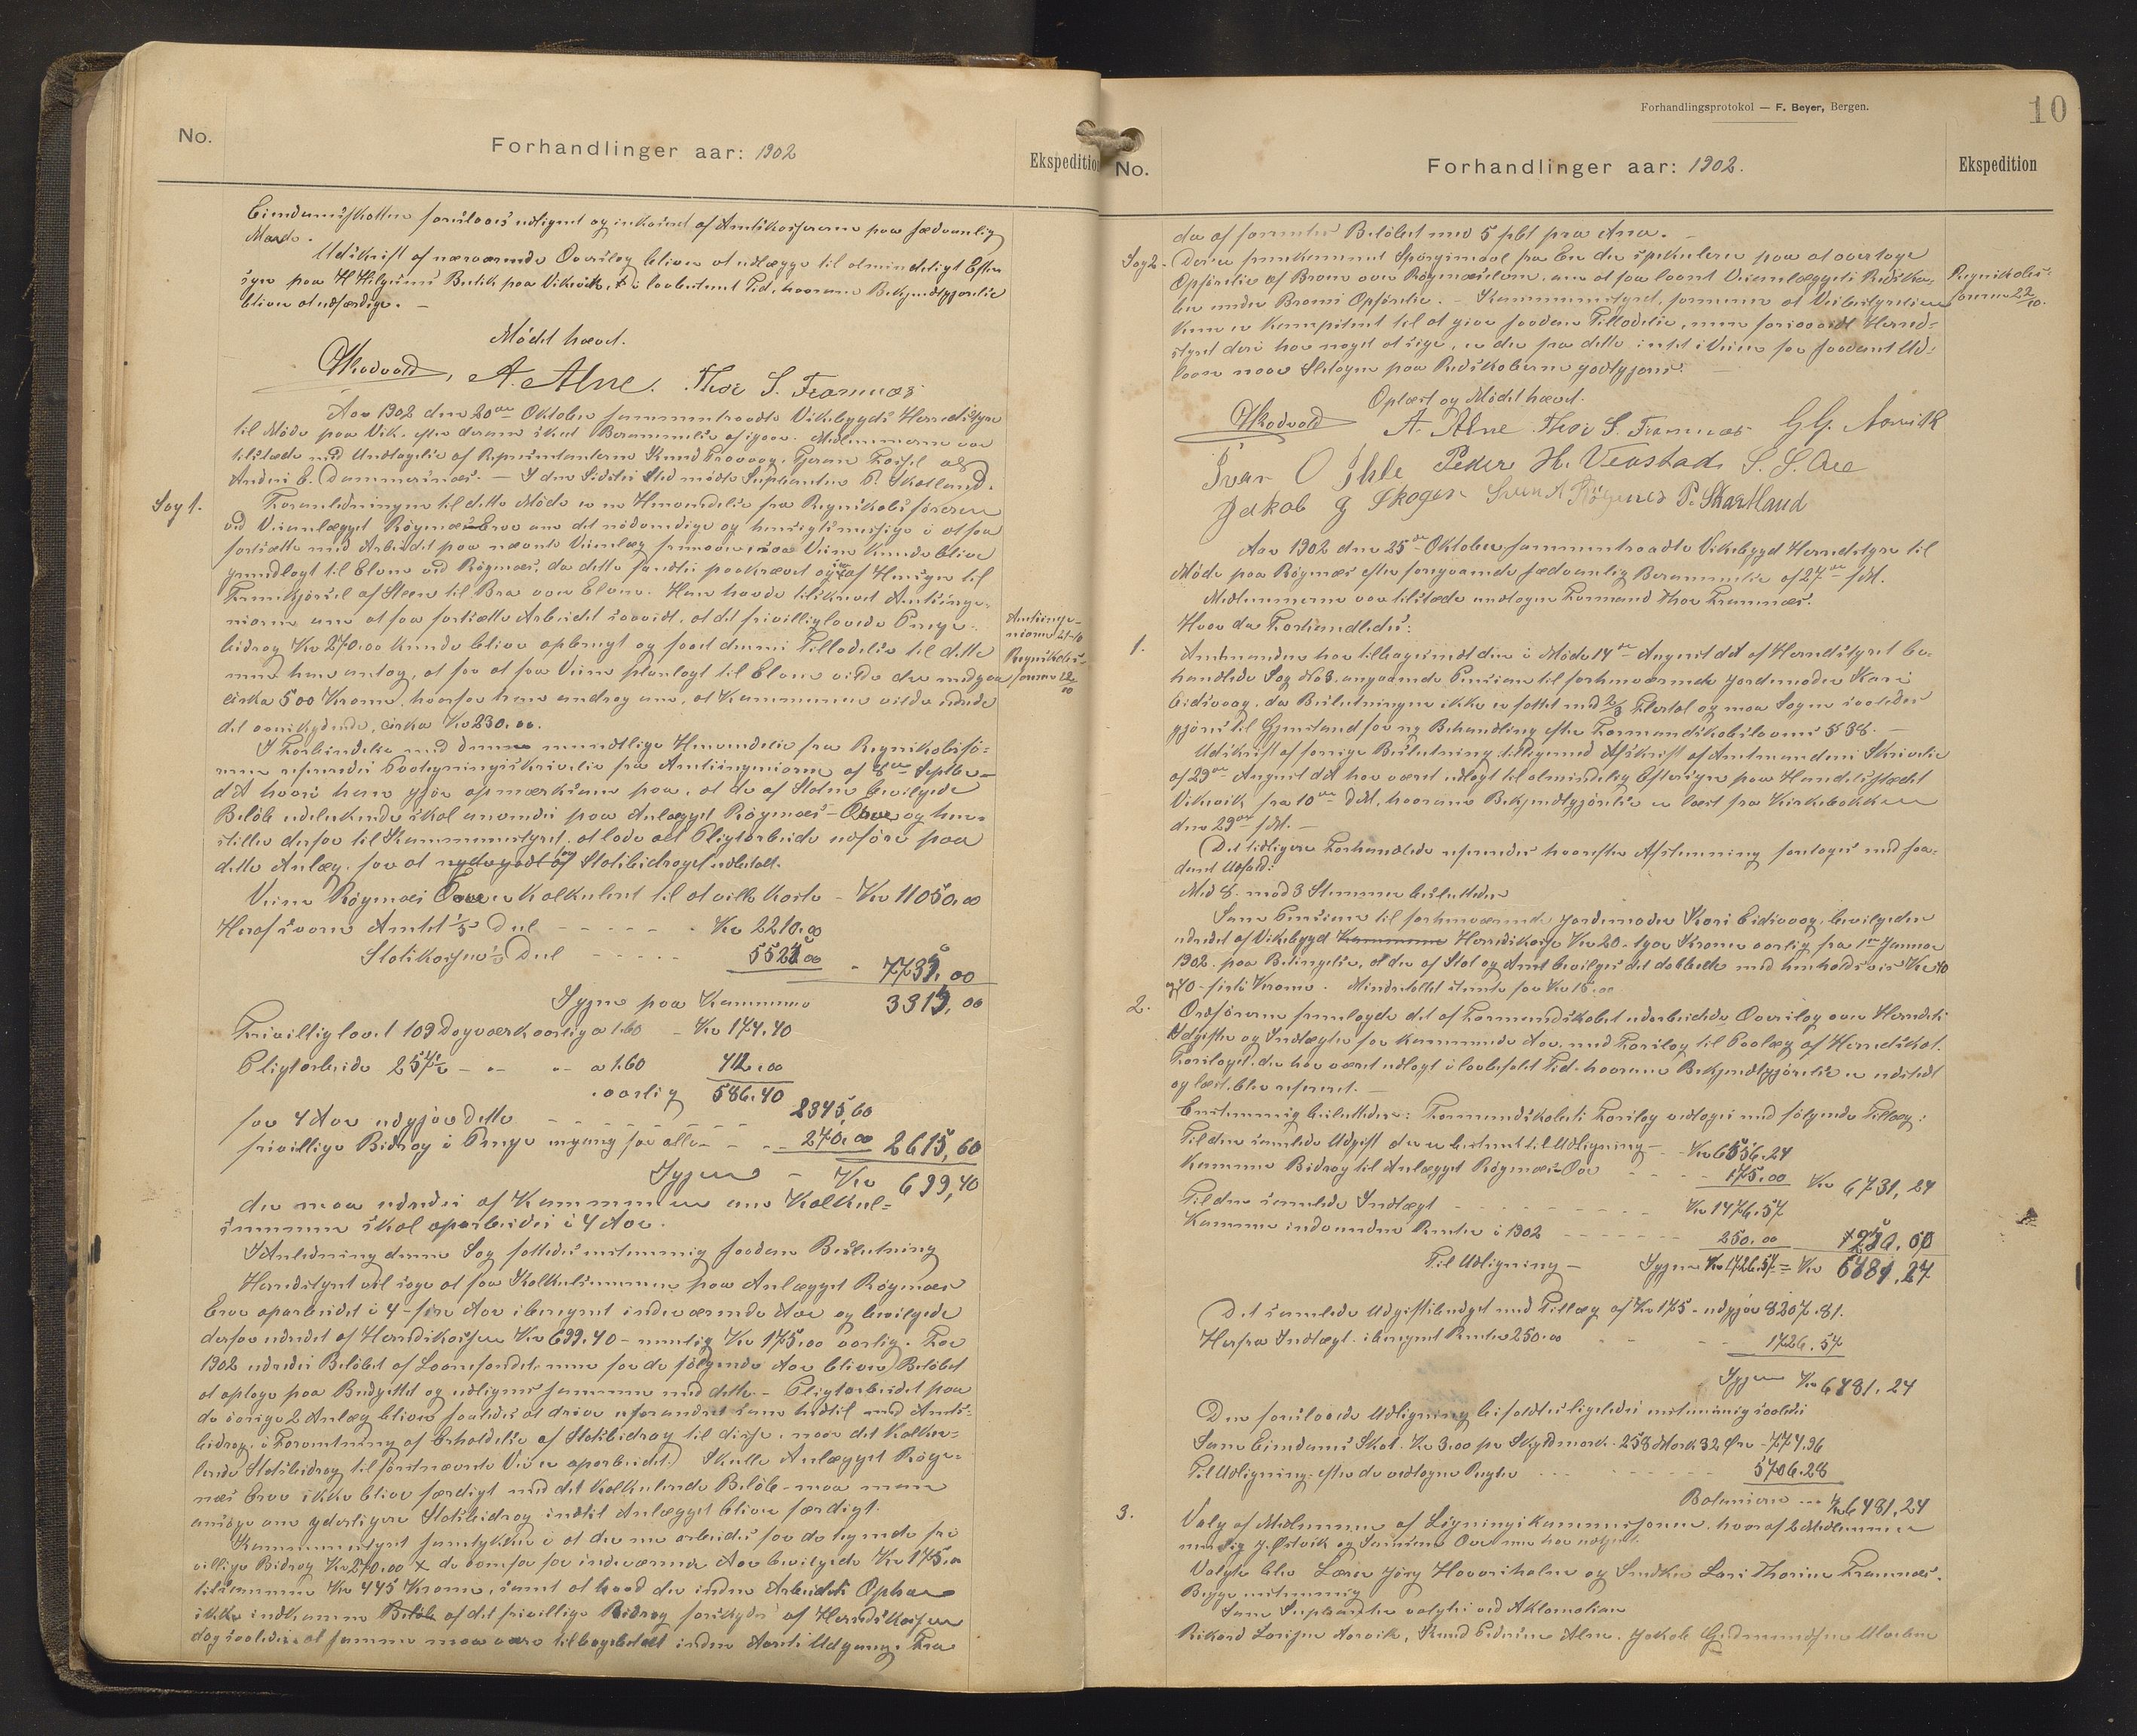 No.
Forhandlinger aar: 1902
Ekspedition
Eiendomsskatten foreslaaes udlignet og inkrævet af Amtskassereren paa sædvanlig
Maade.
Udskrift af nærværende Overslag bliver at udlægge til almindeligt Efter
syn paa H Helgesens Butik paa Vikevik, i lovbestemt Tid, hvorom Bekjendtgjørelse
bliver at udfærdige. –
Mødet hævet.
A. Alne. Thor S. Framnæs
Aar 1902 den 20de Oktober sammentraadte Vikebygds Herredsstyre
til Møde paa Vik, efter derom skeet Berammelse af igaar. Medlemmerne var
tilstede med Undtagelse af Repræsentanterne Knud
Anders E. Dommersnæs. – I den Sidstes Sted mødte Suplanten P. Skatland.
Sag 1.
Foranledningen til dette Møde er en Henvendelse fra Regnskabsføreren
ved Veianlægget Røgnæs om det nødvendige og hensigtsmessige i at faa
fortsætte med Arbeidet paa nævnte Veianlæg Veien kunde blive
grundlagt til Elven ved Røgnæs, da dette saaledes paakrævet og af Hensyn til
Fremkjørsel af Steen til Bro over Elven. Han havde tilskrevet Amtsinge-
niøren om at faa fortsætte Arbeidet saavidt, at det frivilliglovede Penge-
bidrag Kr 270.00 kunde blive opbrugt og faaet dennes Tilladelse til dette
men han antog, at for at faa Veien planlagt til Elven vilde der medgaa
cirka 500 Kroner, hvorfor han androg om, at Kommunen vilde udrede
det overskydende, cirka Kr 230.00.
Amtsinge-
niøren 21-10
Regnskabs-
føreren 22/10
I Forbindelse med denne mundtlige Henvendelse fra Regnskabsfø-
reren refereredes Paategningsskrivelse fra Amtsingeniøren af 8de Septbr
d.A. hvori han gjør opmærksom paa, at de af Staten bevilgede
Beløb udelukkende skal anvendes paa Anlægget Røgnæs – og hen-
stiller derfor til Kommunestyret, at lade alt Pligtarbeide udføre paa
dette Anlæg, for at Statsbidraget udbetalt.
Veien Røgnæs er kalkuleret til at ville koste – Kr 11050.00
Heraf svarer Amtet 1/5 Deel - - - - - Kr 2210.00
Statskassen 1/2 Deel - - - - - 5525.00 - 7735.00
Igjen paa Kommunen 3315,00
Frivillig lovet 109 Dagværk aarlig a 1.60 – Kr 174.40
Pligtarbeide 257½ – " – " – a 1.60 412.00
aarlig 586.40
for 4 Aar udgjør dette - - - - - - 2345,60
frivillige Bidrag i Penge engang for alle - - - 270.00 2615,60
Igjen – Kr 699,40
der maa udredes af Kommunen om Kalkul-
summen skal oparbeides i 4 Aar.
I Anledning denne Sag fattedes enstemmig saadan Beslutning
Herredsstyret vil søge at faa Kalkulsummen paa Anlægget Røgnæs
oparbeidet i 4 – fire Aar iberegnet indeværende Aar og bevilgede
derfor udredet af Herredskassen Kr 699.40 – nemlig Kr 175.00 aarlig. For
1902 udredes Beløbet af Laanefondet, men for de følgende Aar bliver Beløbet
at optage paa Budgettet og udlignes sammen med dette. – Pligtarbeidet paa
de øvrige 2 Anlæg bliver saaledes at drive uforandret som hidtil med Amts-
bidrag, i Forventning af Erholdelse af Statsbidrag til disse, naar det kalku-
lerede Statsbidrag til førstnævnte Vei er oparbeidet. Skulle Anlægget Røg-
næs ikke blive færdigt med det kalkulerede Beløb – maa man
ansøge om yderligere Statsbidrag indtil Anlægget bliver færdigt.
Kommunestyret samtykker i at der nu arbeides for de tegnede fri
villige Bidrag Kr 270.00 + de ovenfor for indeværende Aar bevilgede Kr 175.00
tilsammen Kr 445 Kroner, samt at hvad der inden Arbeidets Ophør
ikke indkommer af det frivillige Bidrag forskydes af Herredskassen
dog saaledes at samme maa være tilbagebetalt inden Aarets Udgang. Fra
Forhandlingsprotokol — F. Beyer, Bergen.
10
No.
Forhandlinger aar: 1902.
Ekspedition
da af forrentes Beløbet med 5 pCt pro Anno. –
Sag 2.
Derer fremkommet Spørgsmaal fra En der spekulerer paa at overtage
Opførelse af Broen over Røgnæselven, om at faa laant Veianlæggets Redska-
ber under Broens Opførelse. – Kommunestyret formener at Veibestyrelsen
kun er kompetent til at give saadan Tilladelse, men forsaavidt Herred-
styret deri har noget at sige, er der fra dette intet i Veien for saadant Ud-
laan naar Slitagen paa Redskaberne godtgjøres. –
Regnskabs-
føreren 22/10.
Oplæst og Mødet hævet.
A. Alne Thor S. Framnæs G G. Norvik
Ivar O Ihle Peder H. Vesstad S. S. Ore
Jakob G Skogen Svend Røgenes P. Skartland
Aar 1902 den 25de Oktober sammentraadte Vikebygd Herredstyre til
Møde paa Røgnæs efter foregaaende sædvanlig Berammelse af 27de f.M.
Medlemmerne var tilstede undtagen Formand Thor Framnæs.
Hvor da Forhandledes:
1.
Amtmanden har tilbagesendt den i Møde 14de August d.A. af Herredsstyret be-
handlede Sag No 8, angaaende Pension til forhenværende Jordemoder Kari
Eidsvaag, da Beslutningen ikke er fattet med 2/3 Flertal og maa Sagen saaledes
gjøres til Gjenstand for ny Behandling efter Formandskabslovens § 38. –
Udskrift af forrige Beslutning tilligemed Afskrift af Amtmandens Skrivelse
af 23de August d.A. har været udlagt til almindelig Eftersyn paa Handelsstedet
Vikevik fra 10de d.M., hvorom Bekjendtgjørelse er læst fra Kirkebakken
den 29de f.M. –
Det tidligere Forhandlede refereredes hvorefter Afstemning foretoges med saa-
dant Udfald:
Med 8 mod 3 Stemmer besluttedes
Som Pension til forhenværende Jordemoder Kari Eidsvaag, bevilgedes
udredet af Vikebygd Herredskasse Kr 20 – tyve Kroner aarlig fra 1ste Januar
1902 paa Betingelse, at der af Stat og Amt bevilges det dobbelte med henholdsvis Kr 40
og 40 – firti Kroner. Mindretallet stemte for Kr 15.00
2.
Ordføreren fremlagde det af Formandskabet udarbeidede Overslag over Herredets
Udgifter og Indtægter for kommende Aar, med Forslag til Paalæg af Herredskat.
Forslaget, der har været udlagt i lovbefalet Tid, hvorom Bekjendtgjørelse er udstedt
og læst, blev refereret. –
Enstemmig besluttedes: Formandskabets Forslag vedtages med følgende Tillæg:
Til den samlede Udgift der er bestemt til Udligning – Kr 6556.24
Kommer Bidrag til Anlægget Røgnæs - - - 175.00 Kr 6731,24
Til den samlede Indtægt - - - - - - - Kr 1476.57
Kommer indvundne Renter i 1902 - - - - - - 250.00 250.00
Til Udligning – Igjen Kr 1726.57 = Kr 6481,24
Det samlede Udgiftsbudget med Tillæg af Kr 175 – udgjør 8207.81.
Herfra Indtægt iberegnet Renter 250.00 - - - 1726.57
Igjen Kr 6481.24
Den foreslaaede Udligning bifaldtes ligeledes enstemmig saaledes
Som Eiendoms Skat Kr 3.00 pr Skyldmark – 258 Mark 32 Øre – 774.96
Til Udligning efter de vedtagne Regler - - - - - 5706.28
Balancerer - - - Kr 6481,24
3.
Valg af Medlemmer af Ligningskommissionen, hvoraf 2 Medlemmer
nemlig J. Østvik og
Valgte blev Lærer Jørg Hovorsholm og Smeden Lars Thorsen Framnæs.
Begge enstemmig
Som Suplanter valgtes ved Aklamation
Rikard Larssen Norvik, Knud Pedersen Alne, Jakob Gudmundsen